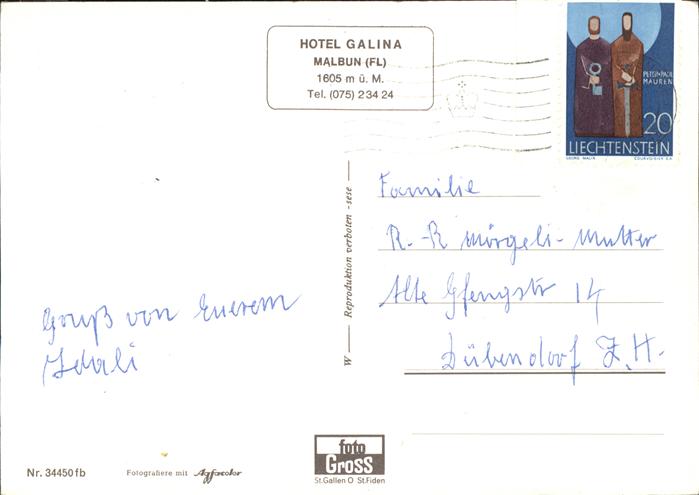 HOTEL GALINA
MALBUN (FL)
1605 m ü. M.
Tel. (075) 2 34 24
PETER+PAUL
MAUREN
20
LIECHTENSTEIN
GEORG MALIN COURVOISIER S.A.
Familie
R.-R Mörgeli-Mutter
Alte Gfengstr 14
Dübendorf Z.H.
Gruß von Euerem
W — Reproduktion verboten - sese —
foto
GROSS
St.Gallen O St.Fiden
Nr. 34450 fb
Fotografiere mit Agfacolor